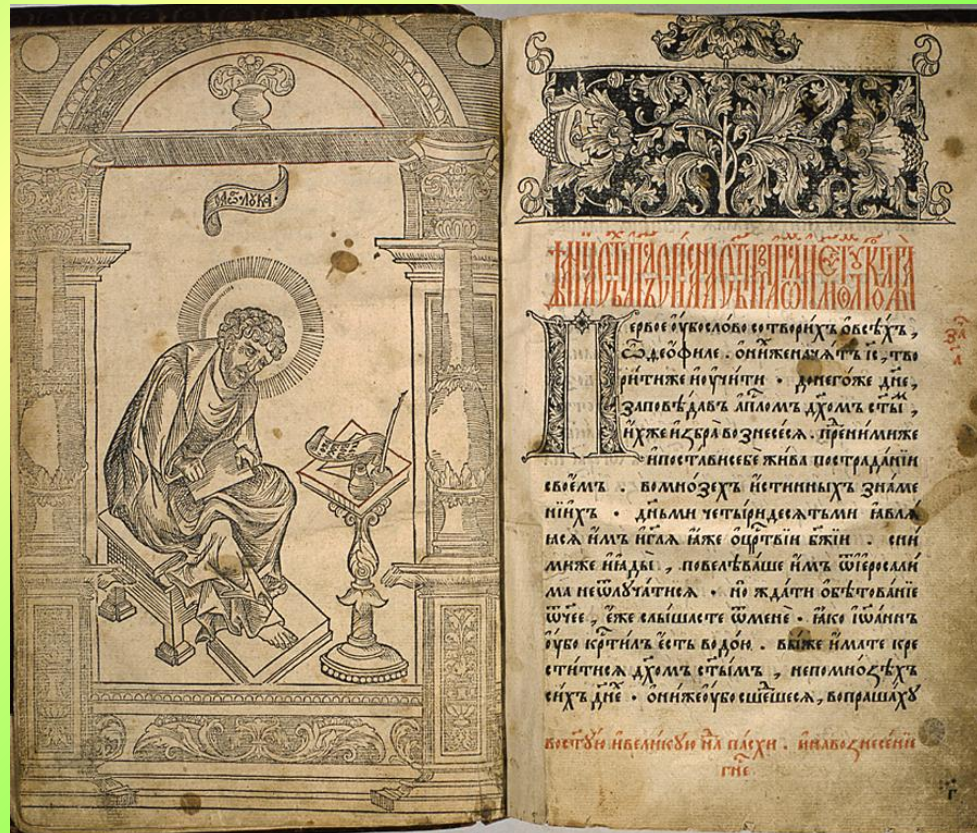 лꙋка
Первое ᲂу҆бо слово сотвори́хъ ѻ҆всѣ́хъ ,
ѽ део́филе . ѻ҆ни́же нача́тъ і҆с , тво
ри́ти же и҆ ᲂу҆чи́ти . до него́же дн҃е ,
заповѣ́давъ а҆пⷭ҇ломъ дх҃омъ ст҃ыⷨ ,
и҆́хже и҆збра̀ вознесе́сѧ . пре́д ни́миже
и҆ поста́ви себѐ жи́ва по страда́нїи
свое́мъ . во мно́зехъ и҆́стинныхъ зна́ме
нїихъ . дн҃ьми четы́ридесѧтьми ꙗ҆влѧ́
ꙗсѧ и҆̀мъ и҆ гл҃ѧ ꙗ҆́же ѻ҆ црⷭ҇твїи бж҃їи . сни́
миже и҆ ꙗ҆ды̀ , повелѣ́ваше и҆̀мъ ѿ і҆еросали́
ма не ѿлꙋча́тисѧ . но жда́ти ѻ҆бѣтова́нїе
ѿч҃ее , є҆́же слы́шасте ѿ менѐ . ꙗ҆́ко і҆ѡа́ннъ
ᲂу҆́бо крⷭ҇ти́лъ є҆́сть водо́ю . вы́ же и҆́мате кре
сти́тисѧ дх҃омъ ст҃ы́мъ , не по мно́ꙁѣхъ
си́хъ дн҃е . ѻ҆ни́же ᲂу҆́бо сше́дшесѧ , вопраша́хꙋ
во ст҃ꙋ́ю и҆ вели́кꙋю нлⷣю па́схи . и҆ на вознесе́нїе
гн҃е
г